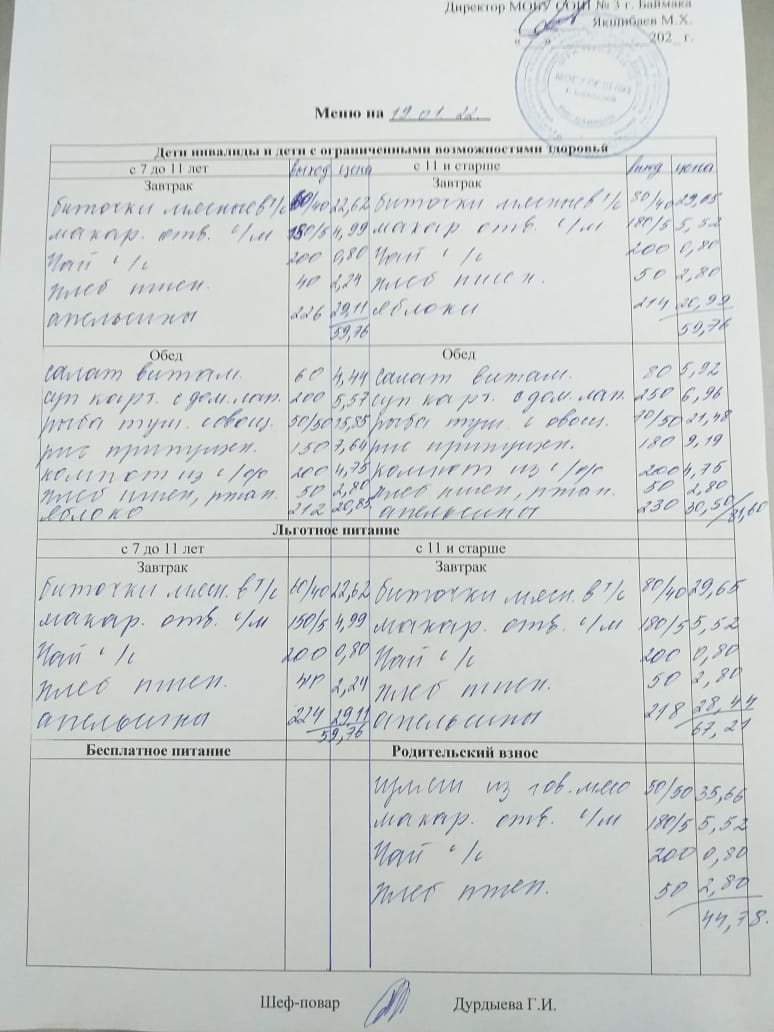 Директор МОБУ СОШ № 3 г. Баймака
Якшибаев М.Х.
« » 202_ г.
Меню на 19 01. 22.
Дети инвалиды и дети с ограниченными возможностями здоровья
с 7 до 11 лет выход цена с 11 и старше выход цена
Завтрак Завтрак
биточки мясные в т/с 60/40 22,62 биточки мясные в т/с 80/40 29,65
макар. отв. с/м 150/5 4,99 макар. отв. с/м 180/5 5,52
Чай с/с 200 0,80 Чай с/с 200 0,80
хлеб пшен. 40 2,24 хлеб пшен. 50 2,80
апельсины 226 29,11 яблоки 214 20,99
59,76 59,76
Обед Обед
салат витам. 60 4,44 салат витам. 80 5,92
суп карт. с дом. лап. 200 5,57 суп карт. с дом. лап. 250 6,96
рыба туш. с овощ. 50/50 15,35 рыба туш. с овощ. 70/50 21,48
рис припущен. 150 7,64 рис припущен. 180 9,19
компот из с/ф 200 4,75 компот из с/ф 200 4,75
хлеб пшен, ржан. 50 2,80 хлеб пшен, ржан. 50 2,80
яблоко 212 апельсины 230 30,50/81,60
Льготное питание
с 7 до 11 лет с 11 и старше
Завтрак Завтрак
биточки мясн. в т/с 60/40 22,62 биточки мясн. в т/с 80/40 29,65
макар. отв. с/м 150/5 4,99 макар. отв. с/м 180/5 5,52
Чай с/с 200 0,80 Чай с/с 200 0,80
хлеб пшен. 40 2,24 хлеб пшен. 50 2,80
апельсины 224 29,11 апельсины 218 28,44
59,76 67,21
Бесплатное питание Родительский взнос
из гов. мяса 50/50 35,66
макар. отв. с/м 180/5 5,52
Чай с/с 200 0,80
хлеб пшен. 50 2,80
44,78.
Шеф-повар Дурдыева Г.И.